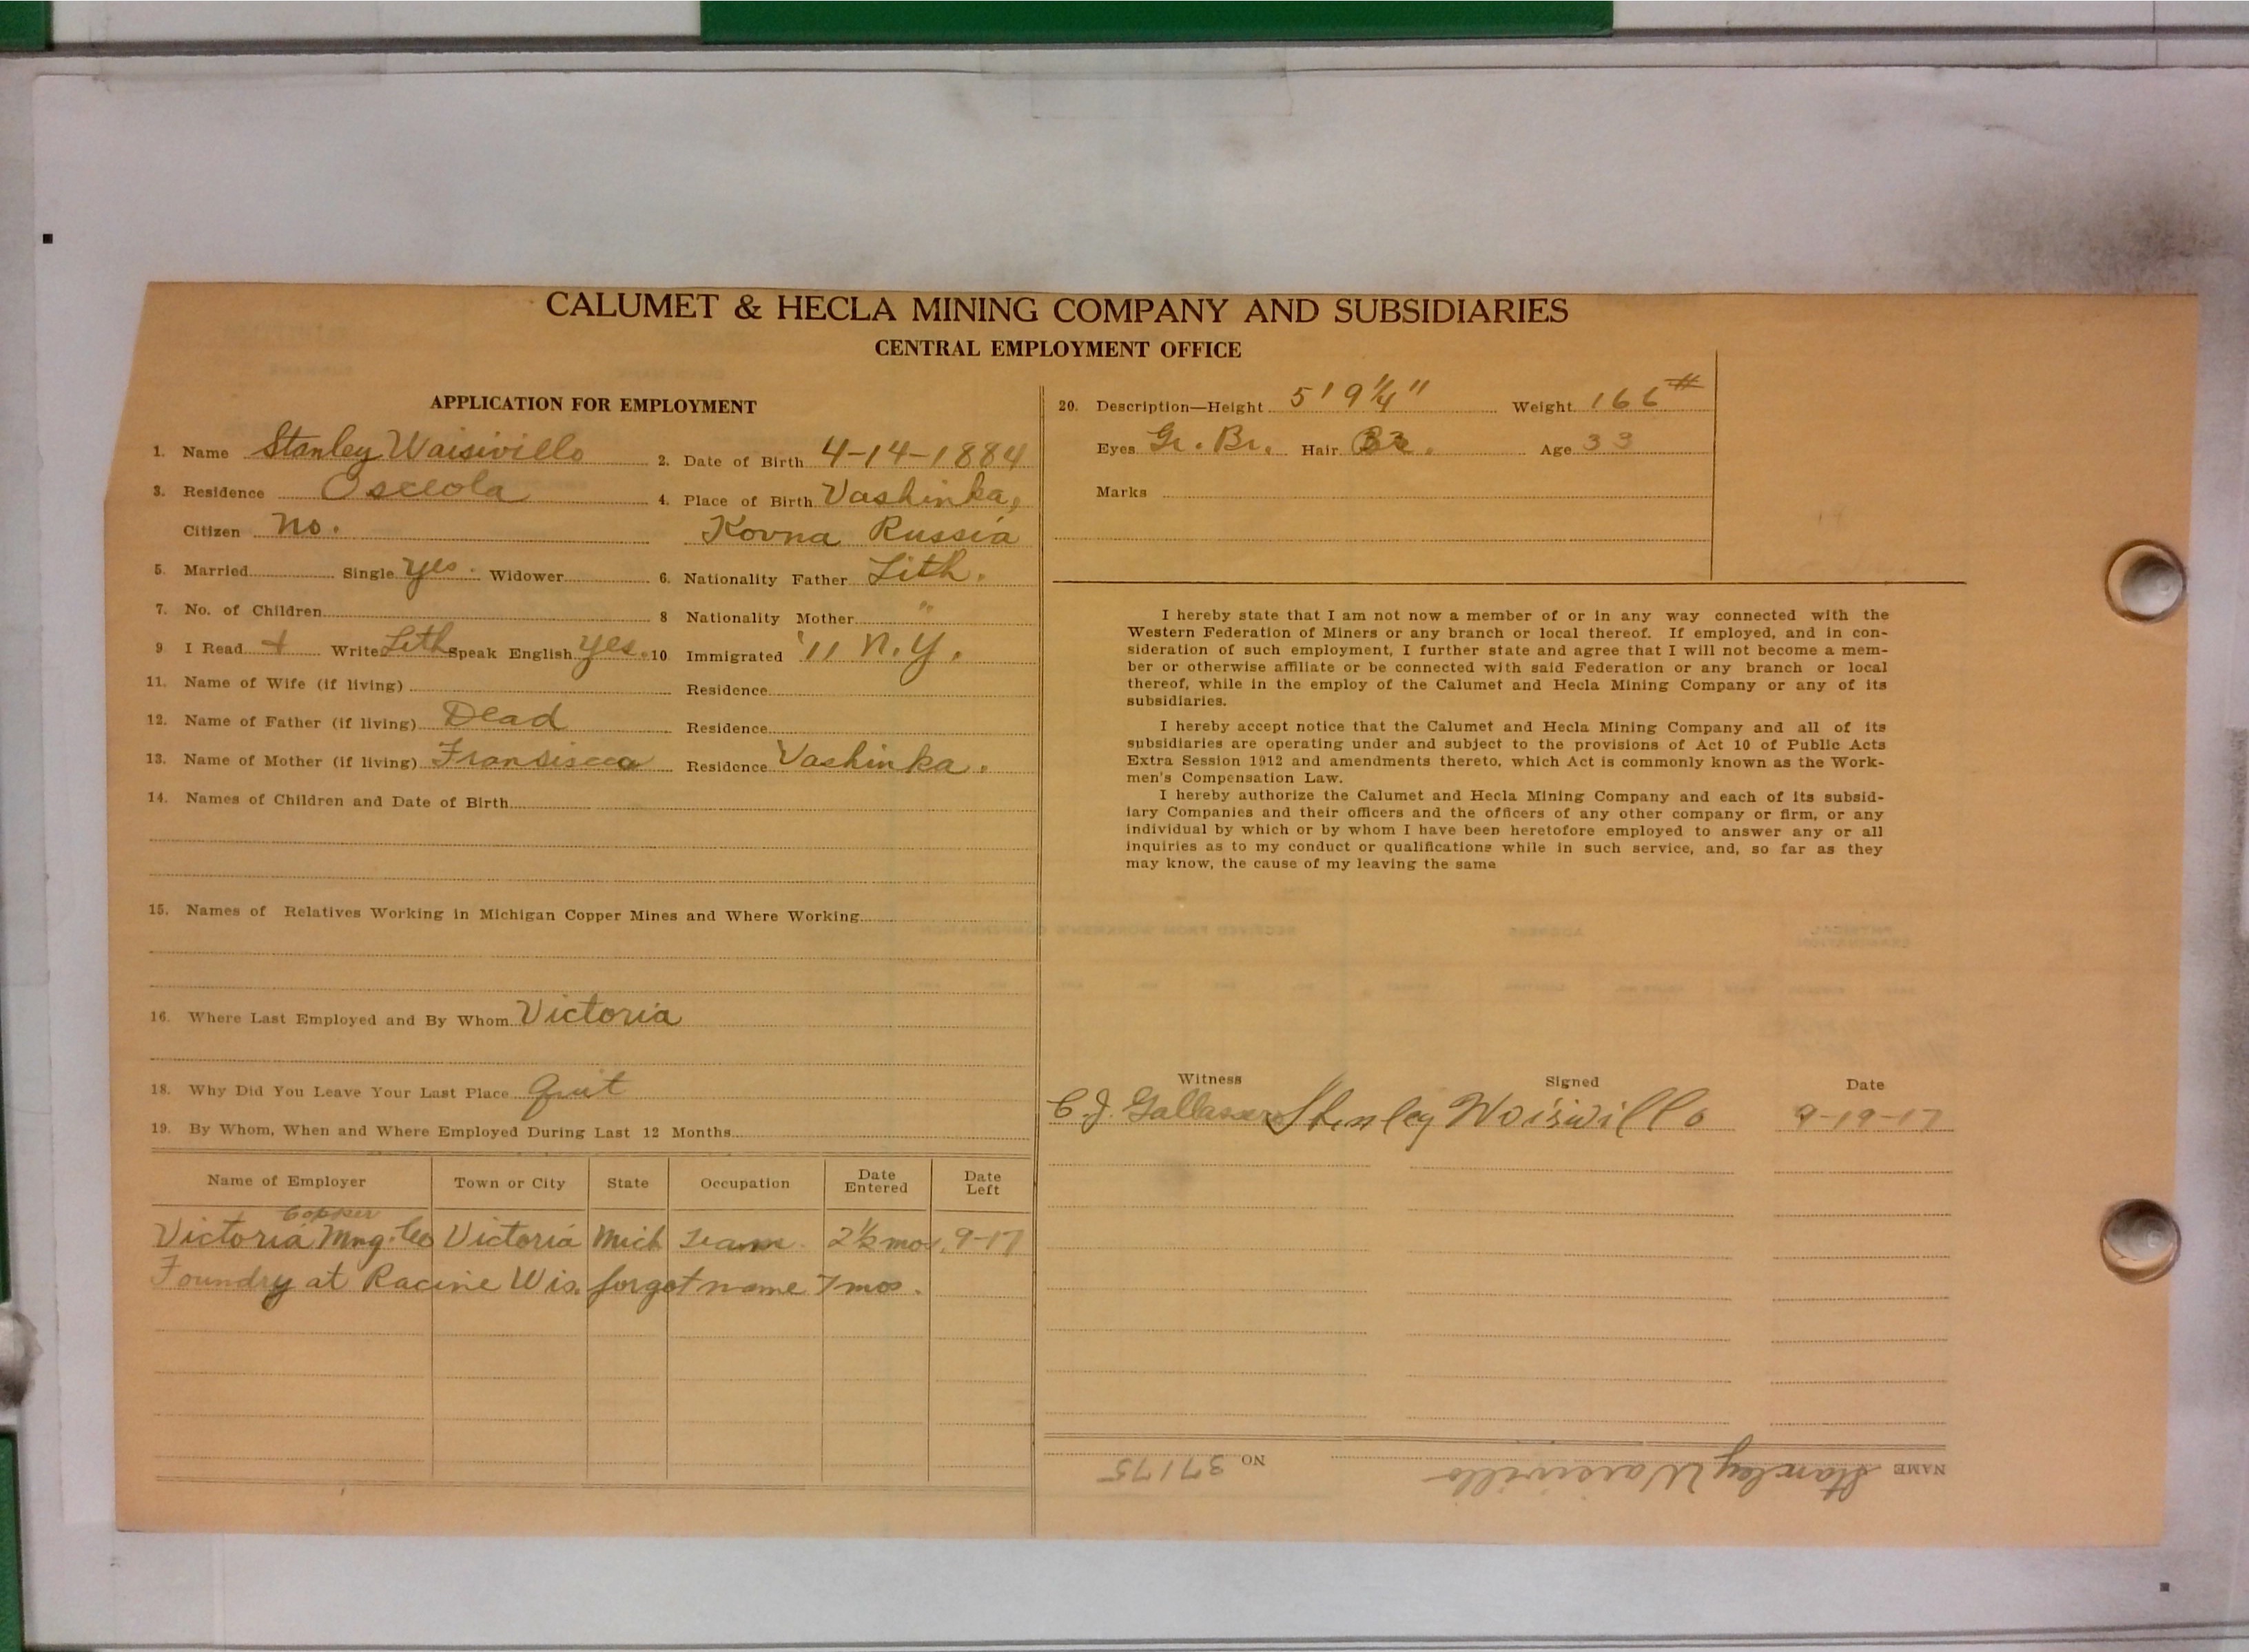 CALUMET & HECLA MINING COMPANY AND SUBSIDIARIES
CENTRAL EMPLOYMENT OFFICE
APPLICATION FOR EMPLOYMENT
1. Name Stanley Waisivillo 2. Date of Birth 4-14-1884
3. Residence Osceola 4. Place of Birth Vashinka,
Citizen no. Kovna Russia
5. Married Single yes. Widower 6. Nationality Father Lith.
7. No. of Children 8 Nationality Mother "
9 I Read + Write Lith Speak English yes. 10 Immigrated '11 N.Y.
11. Name of Wife (if living) Residence
12. Name of Father (if living) Dead Residence
13. Name of Mother (if living) Fransisca Residence Vashinka.
14. Names of Children and Date of Birth
15. Names of Relatives Working in Michigan Copper Mines and Where Working
16. Where Last Employed and By Whom Victoria
18. Why Did You Leave Your Last Place quit
19. By Whom, When and Where Employed During Last 12 Months
Name of Employer Town or City State Occupation Date Entered Date Left
Copper
Victoria Mng. Co Victoria Mich 2½ mos. 9-17
Foundry at Racine Wis. forgot name 7 mos.
20. Description—Height 5' 9 1/4" Weight 166 #
Eyes Gr. Br. Hair Br. Age 33
Marks
I hereby state that I am not now a member of or in any way connected with the
Western Federation of Miners or any branch or local thereof. If employed, and in con-
sideration of such employment, I further state and agree that I will not become a mem-
ber or otherwise affiliate or be connected with said Federation or any branch or local
thereof, while in the employ of the Calumet and Hecla Mining Company or any of its
subsidiaries.
I hereby accept notice that the Calumet and Hecla Mining Company and all of its
subsidiaries are operating under and subject to the provisions of Act 10 of Public Acts
Extra Session 1912 and amendments thereto, which Act is commonly known as the Work-
men's Compensation Law.
I hereby authorize the Calumet and Hecla Mining Company and each of its subsid-
iary Companies and their officers and the officers of any other company or firm, or any
individual by which or by whom I have been heretofore employed to answer any or all
inquiries as to my conduct or qualifications while in such service, and, so far as they
may know, the cause of my leaving the same
Witness Signed Date
C. J. Stenley Woiswillo 9-19-17
NAME Stanley Waisivillo NO. 37175